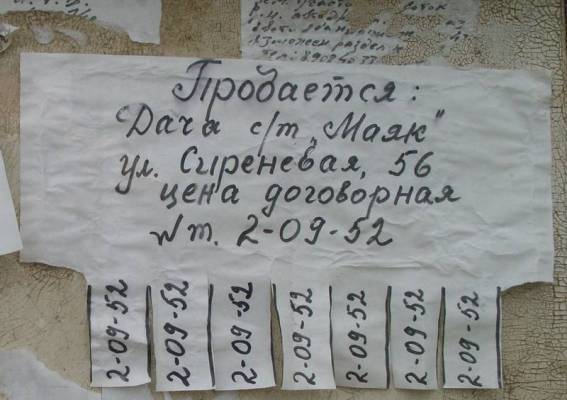 Продается:
Дача с/т "Маяк"
ул. Сиреневая, 56
цена договорная
№ т. 2-09-52
2-09-52
2-09-52
2-09-52
2-09-52
2-09-52
2-09-52
2-09-52